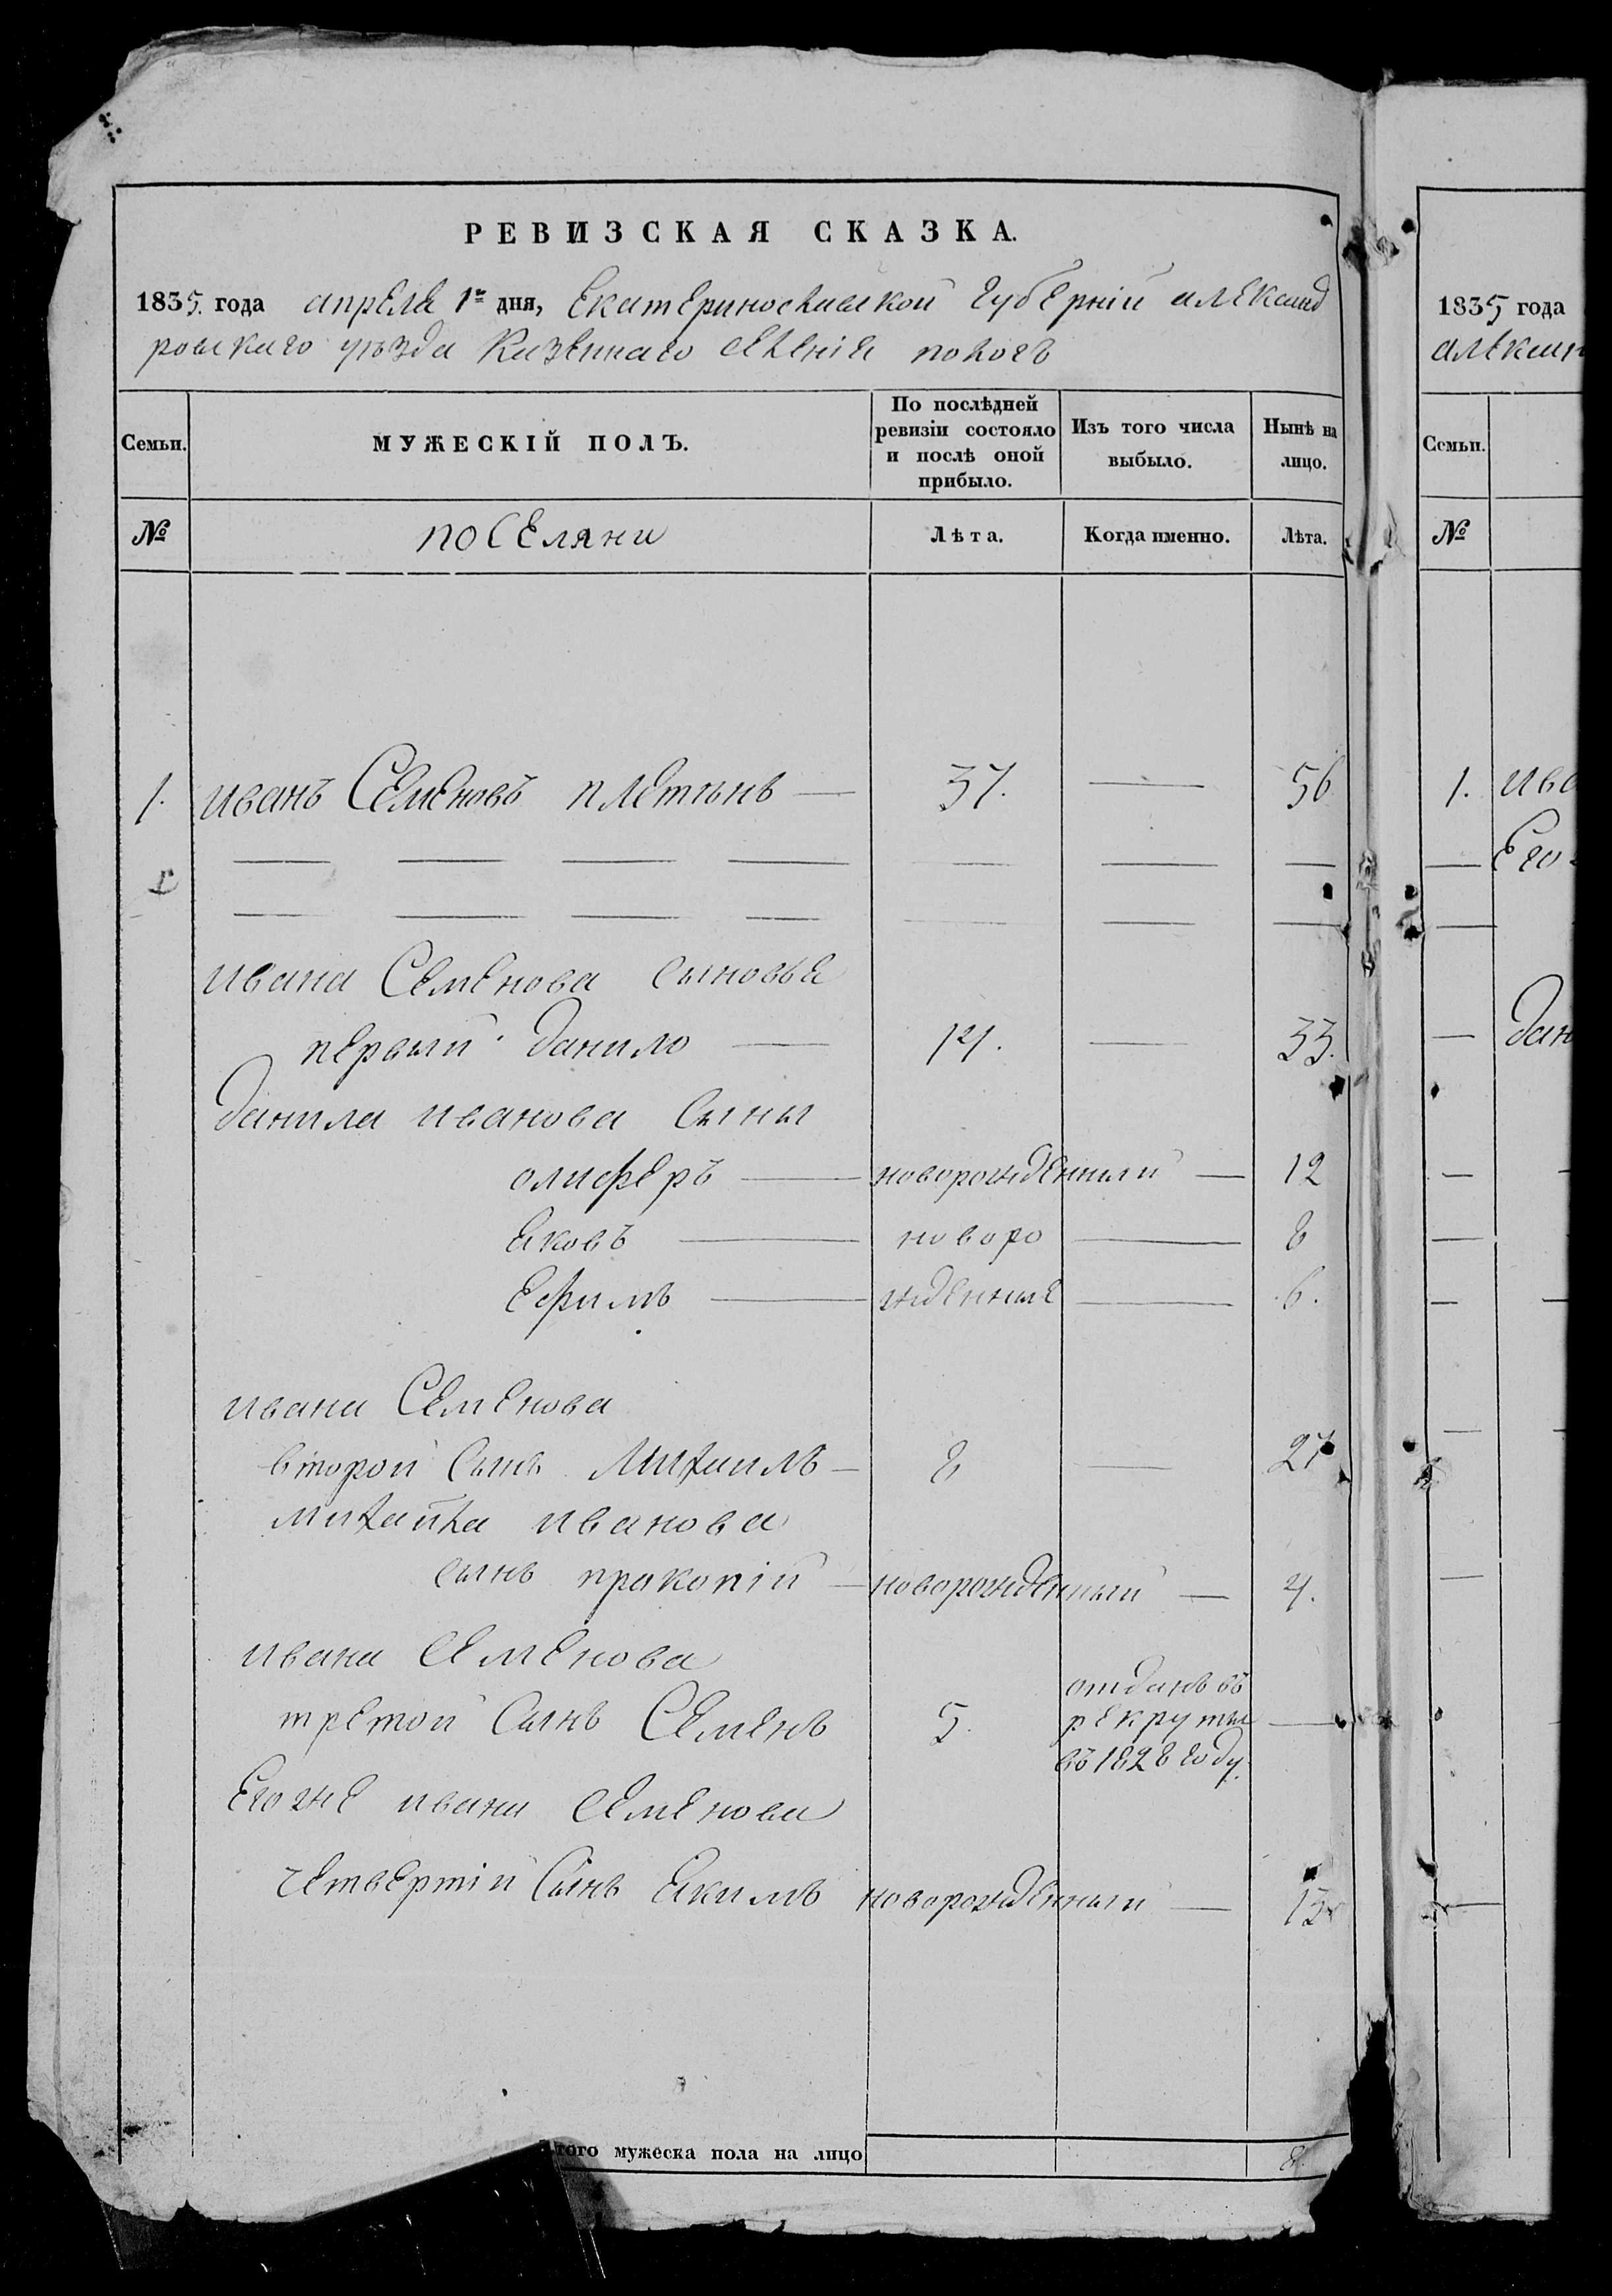 РЕВИЗСКАЯ СКАЗКА.
1835. года апреля 1го дня, Екатеринославской Губерніи александ
ровскаго уѣзда Казеннаго селенія пологъ
Семьи. МУЖЕСКІЙ ПОЛЪ. По послѣдней ревизіи состояло и послѣ оной прибыло. Изъ того числа выбыло. Нынѣ на лицо.
№ поселяни Лѣта. Когда именно. Лѣта.
1. иванъ Семеновъ — 37. — 56
— — — — — — —
— — — — — — —
ивана Семенова сыновья
первый данило — 14. — 33.
данила иванова сыны
олиферъ — новорожденный — 12
Яковъ — новоро — 8
Ефимъ — жденные — 6.
ивана Семенова
второй сынъ Михаилъ — 8 — 27
михайла иванова
сынъ прокопій — новорожденный — 4.
ивана семенова
третой сынъ Семенъ 5. отданъ въ рекруты въ 1828 году. —
Егожъ ивана семенова
четвертій сынъ Екимъ новорожденный — 13
Итого мужеска пола на лицо 8.
1835 года
алексан
Семьи.
№
1. ива
Его
дан